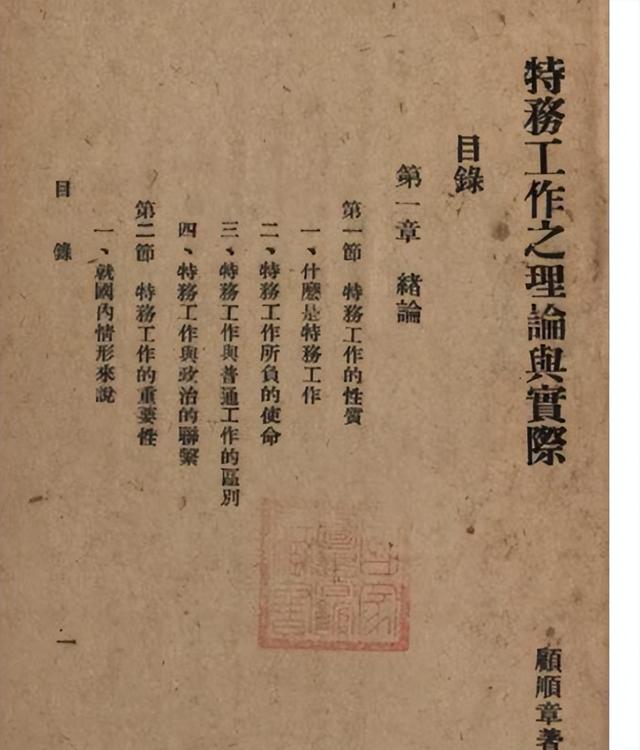 特務工作之理論與實際
顧順章著
目錄
第一章　緒論
第一節　特務工作的性質
一、什麽是特務工作
二、特務工作所負的使命
三、特務工作與普通工作的區別
四、特務工作與政治的聯繫
第二節　特務工作的重要性
一、就國內情形來說
目錄
一